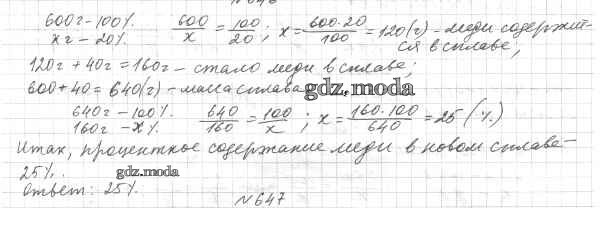 600г - 100%. 600/x = 100/20; x = 600·20/100 = 120(г) - меди содержит-
xг - 20%. ся в сплаве;
120г + 40г = 160г - стало меди в сплаве;
600 + 40 = 640(г) - масса сплава
gdz.moda
640г - 100%. 640/160 = 100/x; x = 160·100/640 = 25 (%)
160г - x%.
Итак, процентное содержание меди в новом сплаве -
25%.
gdz.moda
Ответ: 25%.
№647